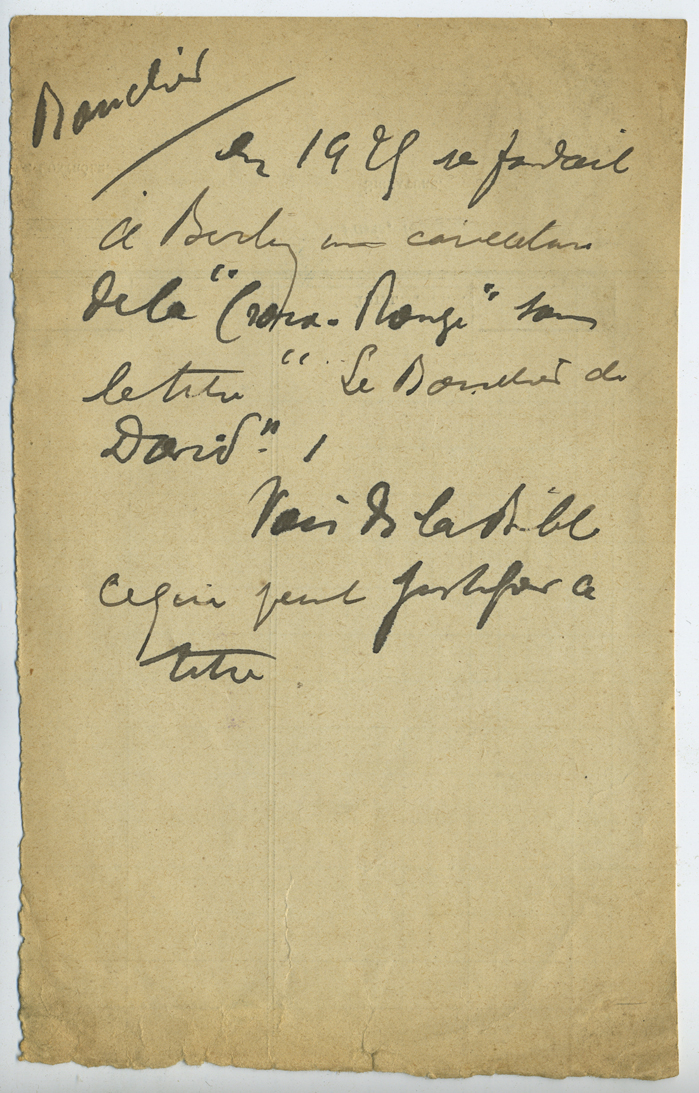 Bouclier
En 1925 se fondait
à Berlin une caricature
de la "Croix-Rouge" sous
le titre " Le Bouclier de
David" ,
Voir ds la Bible
ce qui peut justifier ce
titre